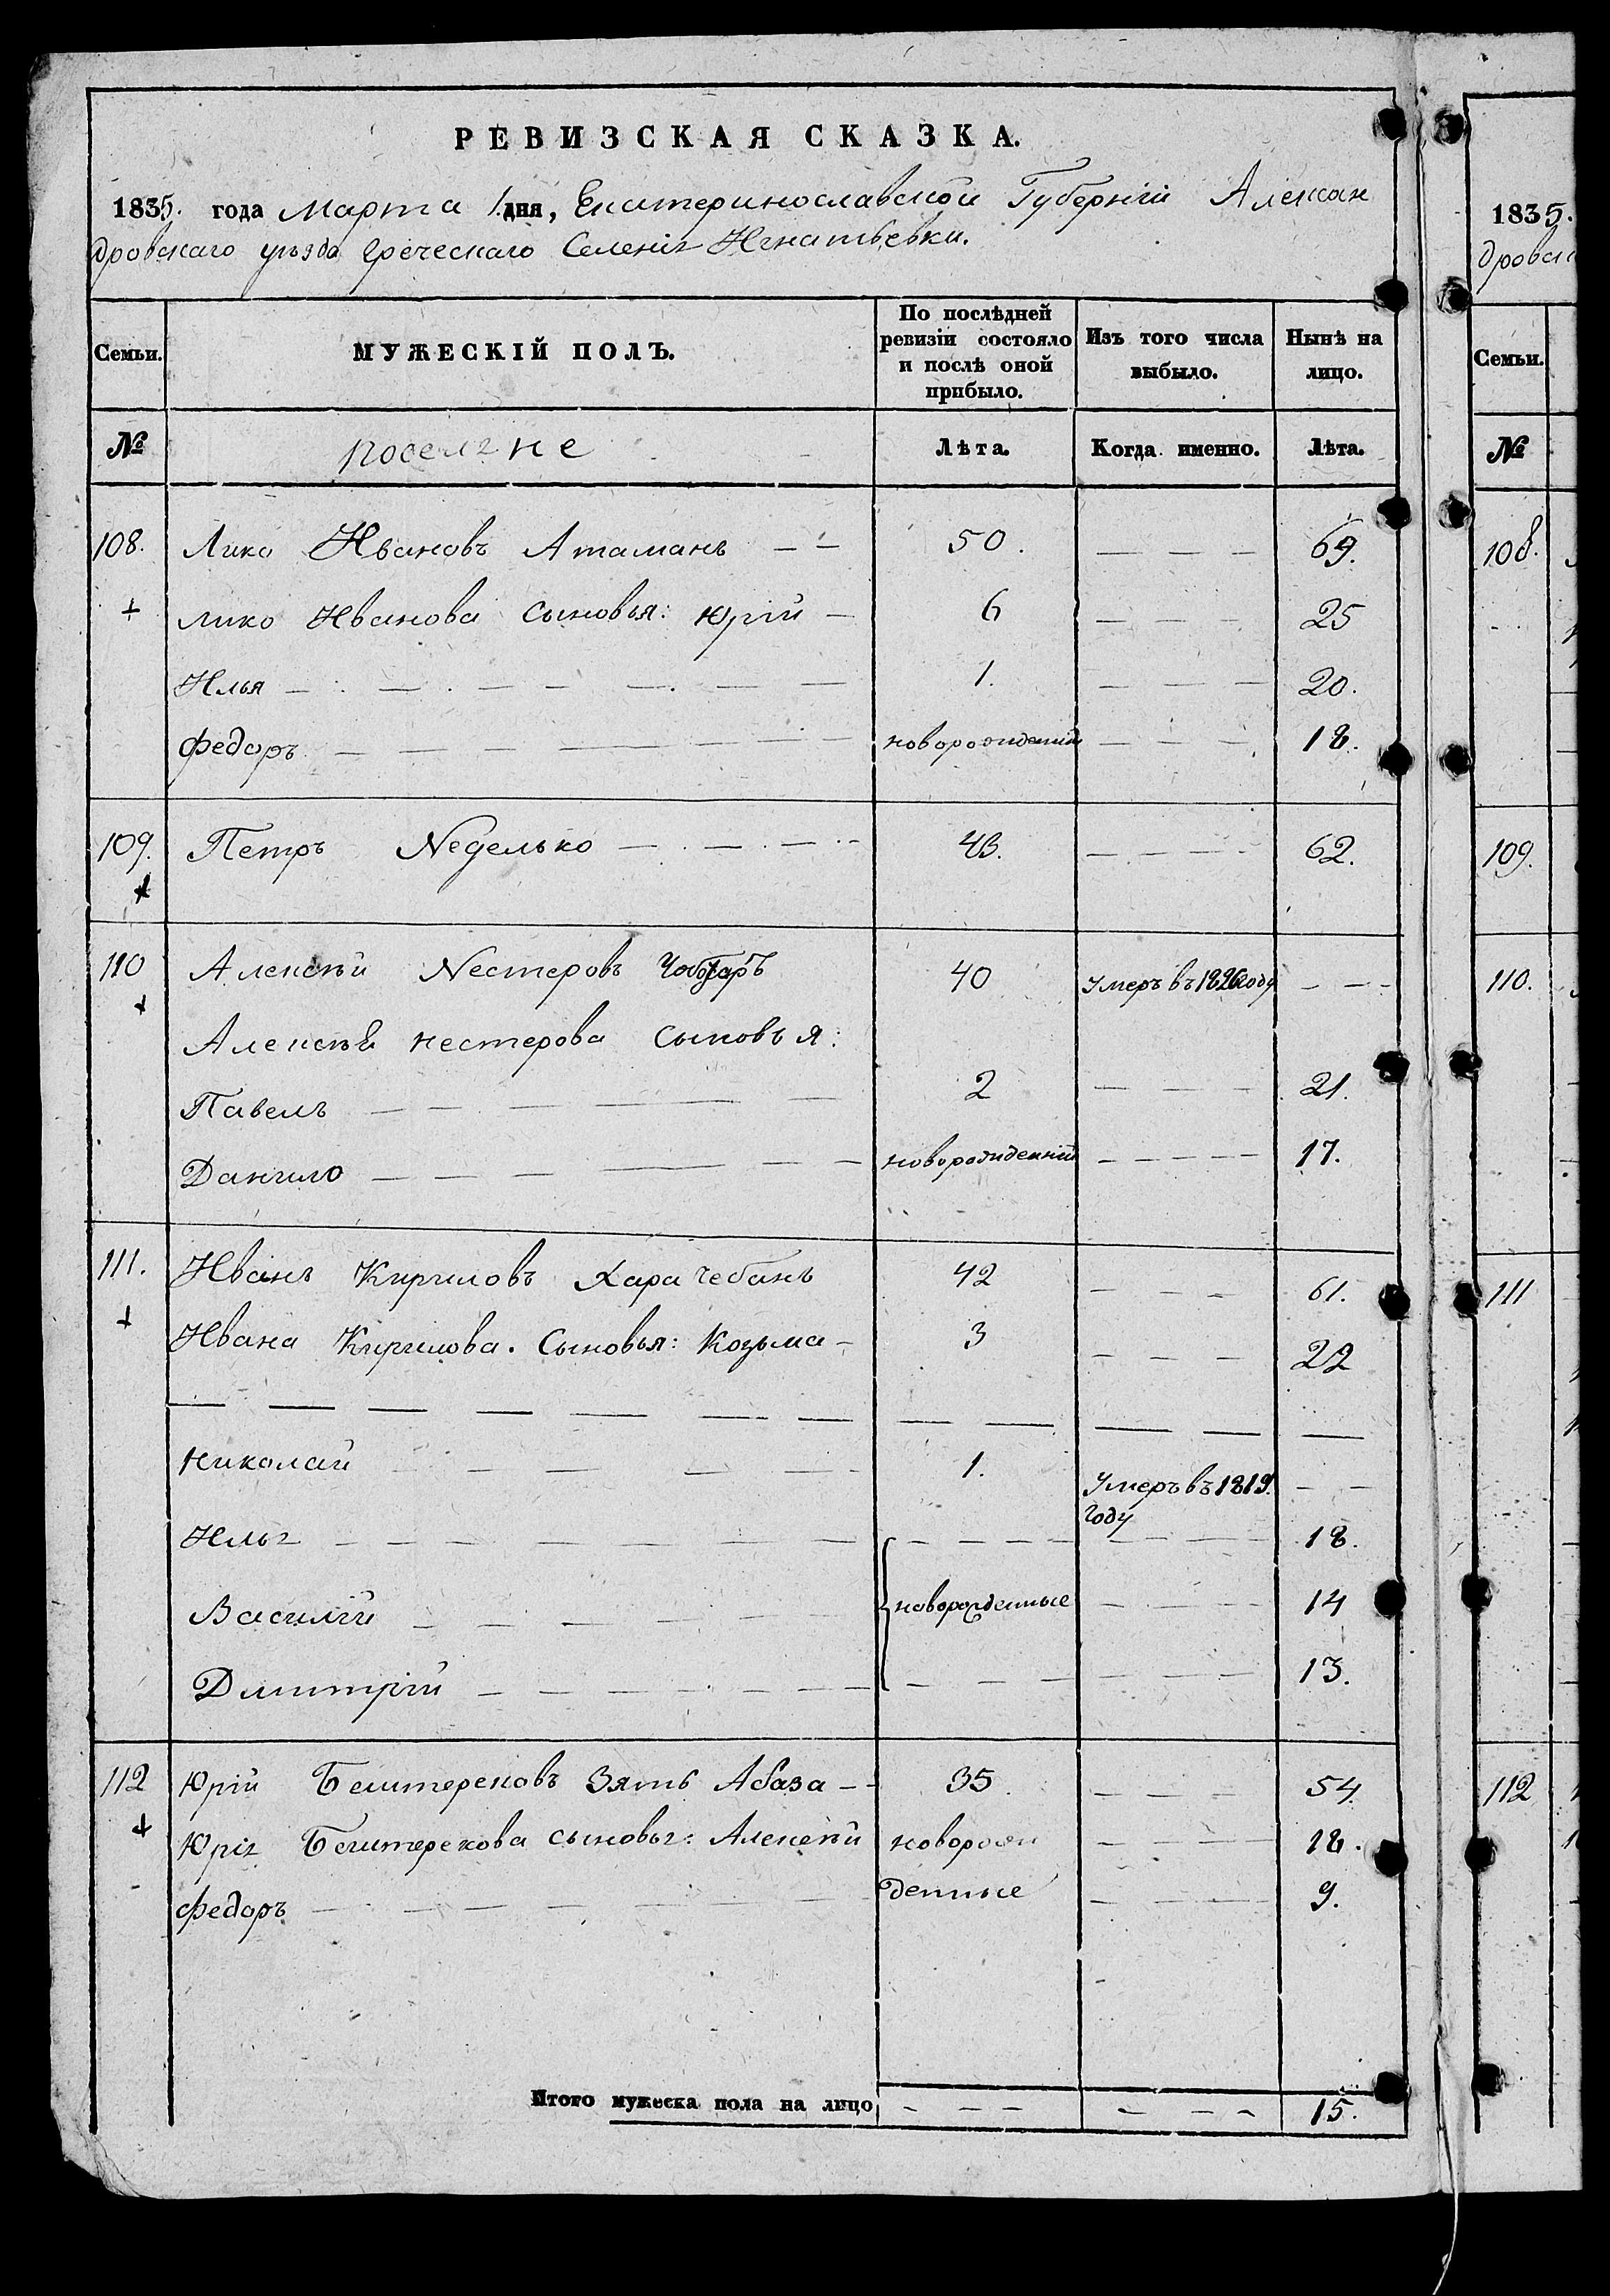 РЕВИЗСКАЯ СКАЗКА.
1835. года Марта 1. дня, Екатеринославской Губерніи Алексан
дровскаго уѣзда Греческаго Селенія Игнатьевки.
Семьи. МУЖЕСКІЙ ПОЛЪ. По послѣдней ревизіи состояло и послѣ оной прибыло. Изъ того числа выбыло. Нынѣ на лицо.
№ поселяне Лѣта. Когда именно. Лѣта.
108. Лико Ивановъ Атаманъ — — 50. — — — 69.
+ Лико Иванова Сыновья: Юрій — 6 — — — 25
Илья — — — — 1. — — — 20.
Федоръ — — — — новорожденный — — — 18.
109. Петръ Неделько — — — 43. — — — 62.
+
110 Алексѣй Нестеровъ Чоботаръ 40 Умеръ въ 1826 году — — -
+
Алексѣя Нестерова Сыновья:
Павелъ — — — — 2 — — — 21.
Данило — — — — новорожденный — — — — 17.
111. Иванъ Кириловъ Харачебанъ 42 — — — 61.
+ Ивана Кирилова. Сыновья: Козьма — 3 — — — 22
— — — — — — — — — — — —
Николай — — — — 1. Умеръ въ 1819. году — —
Илья — — — — — — — — — — — 18.
Василій — — — — новорожденные — — — 14
Дмитрій — — — — — — — — — — 13.
112 Юрій Бештерековъ Зять Абаза — - 35. — — — 54.
+ Юрія Бештерекова сыновья: Алексѣй новорож — — — 18.
Федоръ — — — — денные — — — 9.
Итого мужеска пола на лицо — — — — — — 15.
1835.
дровск
Семьи.
№
108.
109.
110.
111
112